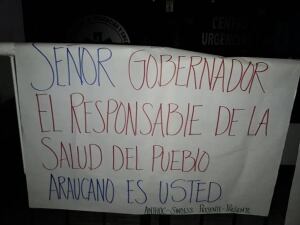 CENTRO
URGENCIAS
SEÑOR GOBERNADOR
EL RESPONSABLE DE LA
SALUD DEL PUEBLO
ARAUCANO ES USTED
ANTHOC - SINDESS PRESENTE - PRESENTE